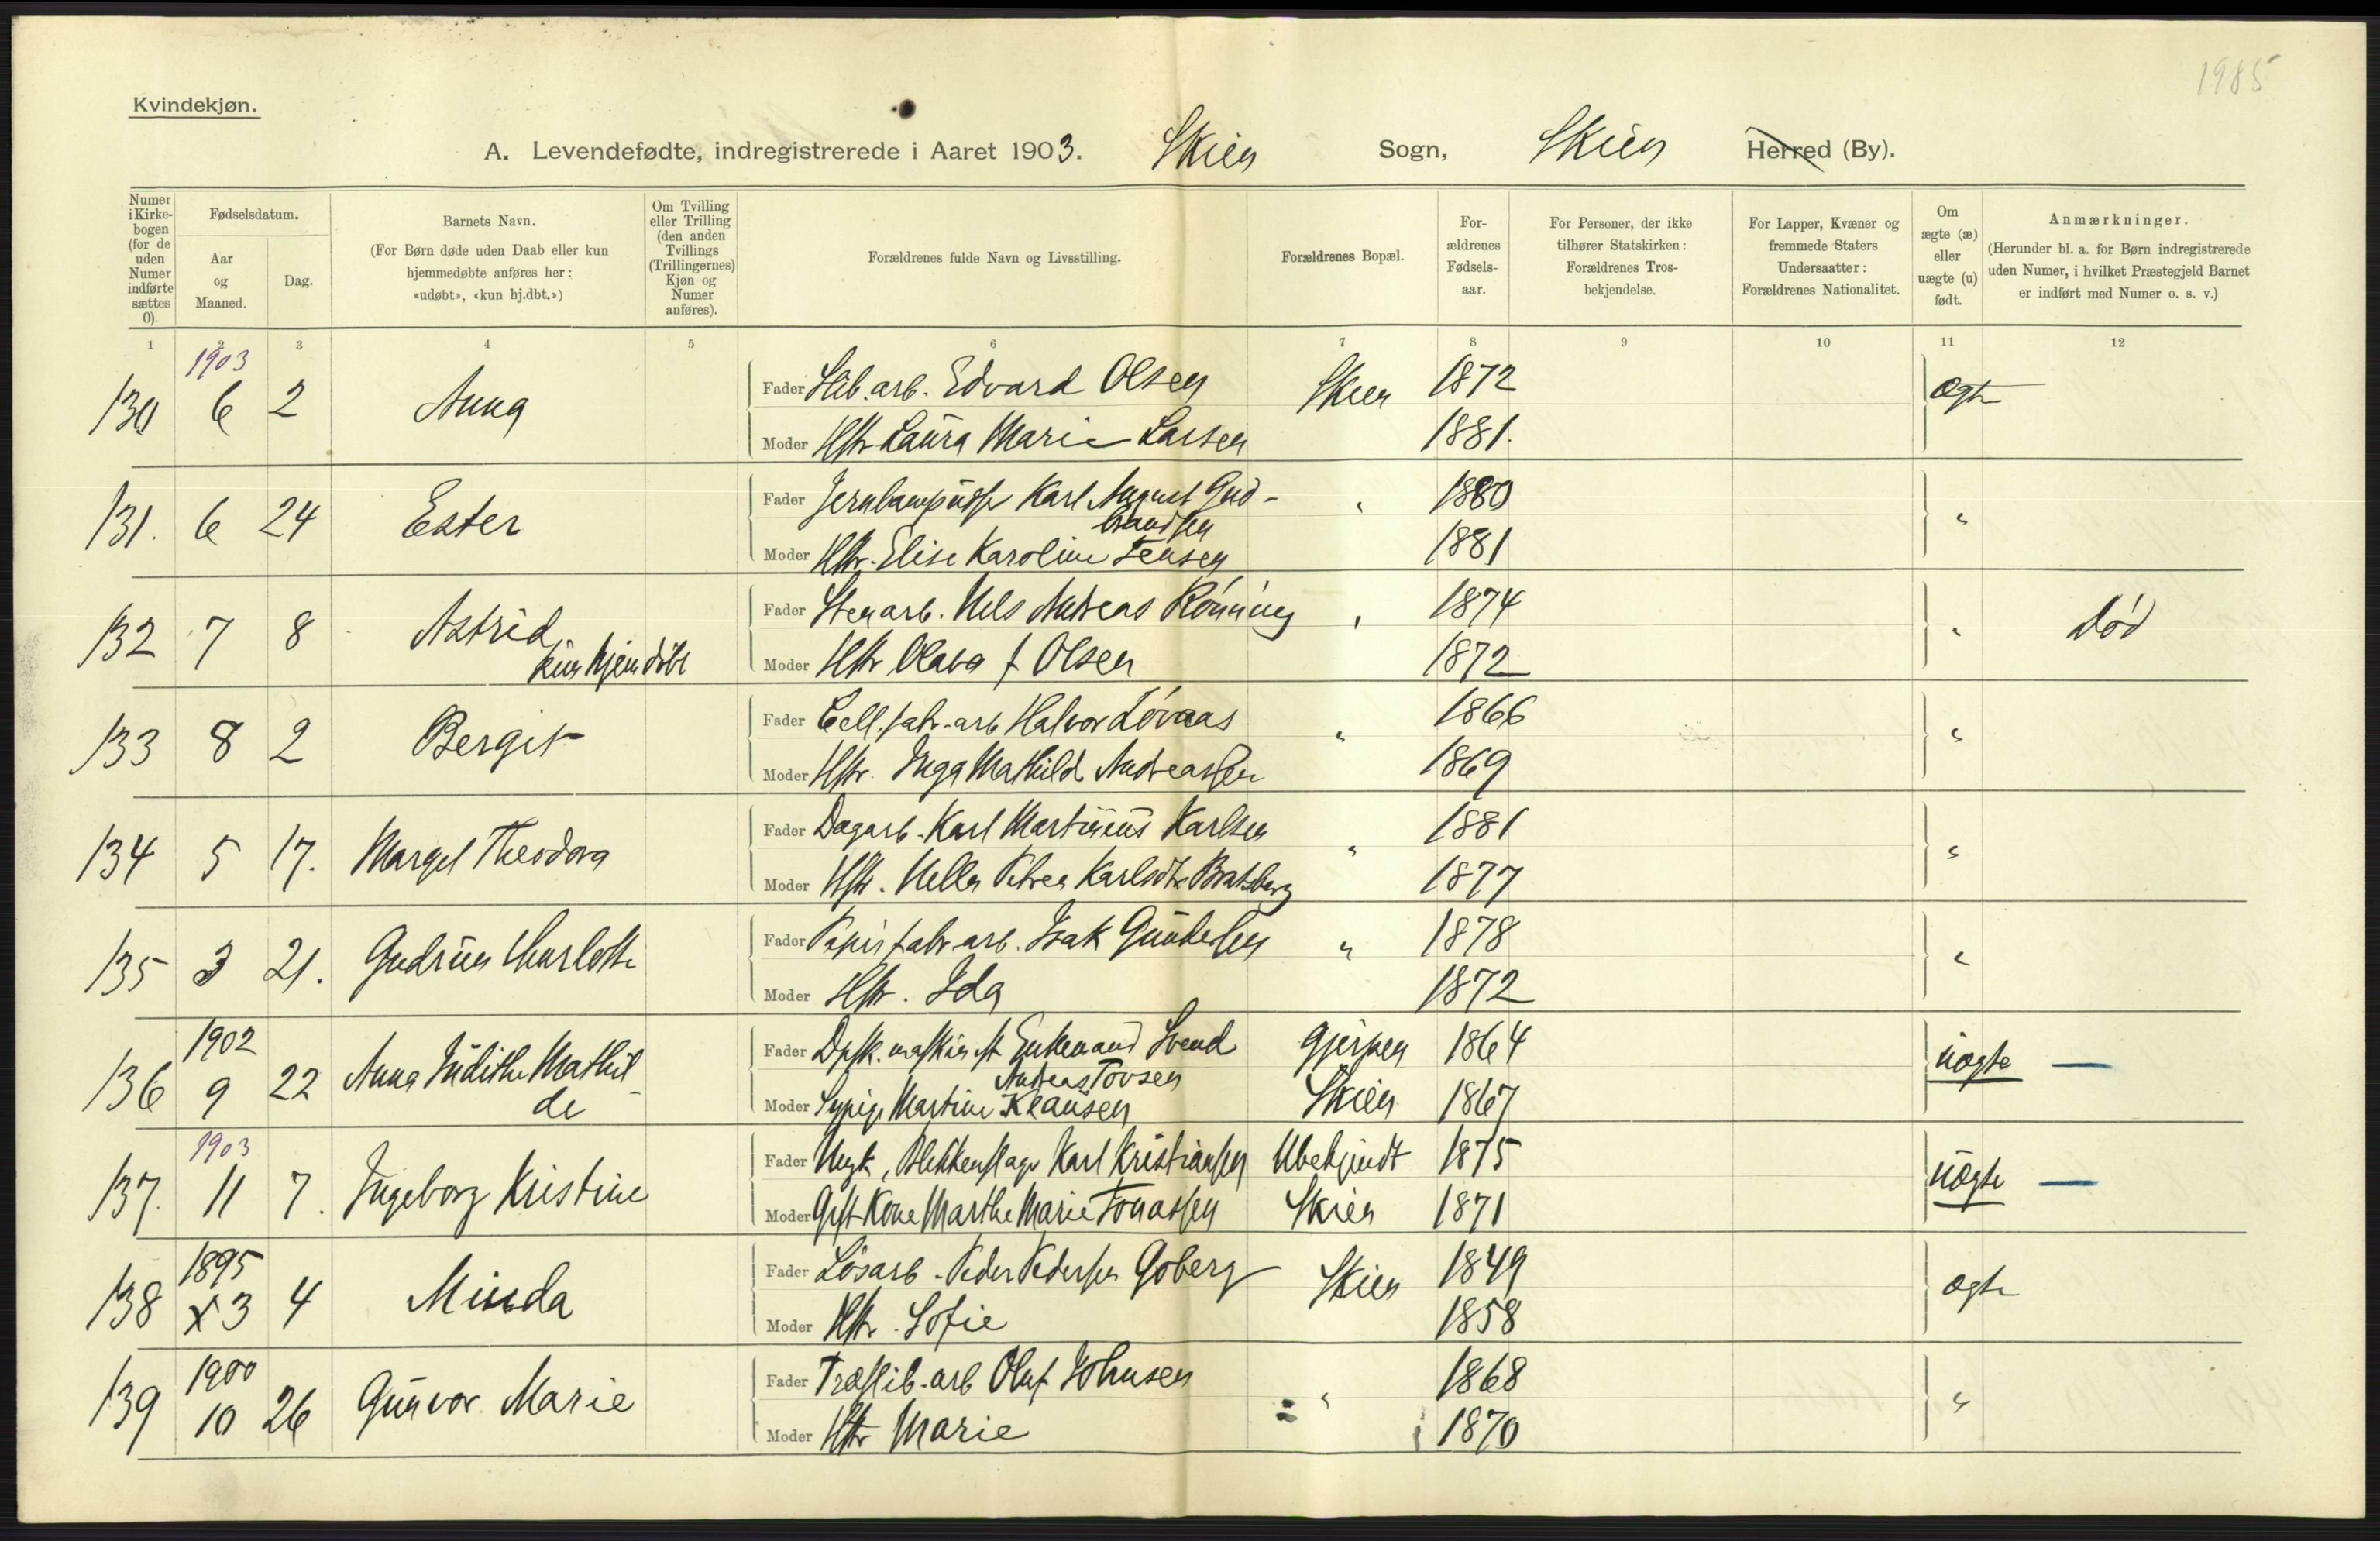 1985
Kvindekjøn.
A. Levendefødte, indregistrerede i Aaret 1903. Skien Sogn, Skien Herred (By).
Numer i Kirkebogen (for de uden Numer indførte sættes 0).
Fødselsdatum.
Aar og Maaned.
Dag.
Barnets Navn.
(For Børn døde uden Daab eller kun hjemmedøbte anføres her: «udøbt», «kun hj.dbt.»)
Om Tvilling eller Trilling (den anden Tvillings (Trillingernes) Kjøn og Numer anføres).
Forældrenes fulde Navn og Livsstilling.
Forældrenes Bopæl.
Forældrenes Fødselsaar.
For Personer, der ikke tilhører Statskirken: Forældrenes Trosbekjendelse.
For Lapper, Kvæner og fremmede Staters Undersaatter: Forældrenes Nationalitet.
Om ægte (æ) eller uægte (u) født.
Anmærkninger.
(Herunder bl. a. for Børn indregistrerede uden Numer, i hvilket Præstegjeld Barnet er indført med Numer o. s. v.)
1 2 3 4 5 6 7 8 9 10 11 12
1903
130 6 2 Anna Fader Slib.arb. Edvard Olsen Skien 1872 ægte
Moder Hstr Laura Marie Larsen 1881.
131. 6 24 Ester Fader Karl August Gud- " 1880 "
brandsen
Moder Hstr. Elise Karoline Jensen 1881
132 7 8 Astrid Fader Stenarb. Nils Andreas Rönning " 1874 " Død
kun hjemdöbt
Moder Hstr Olava f Olsen 1872
133 8 2 Bergit Fader Cell.fabr.arb Halvor Lövaas " 1866 "
Moder Hstr. Inga Mathilde Andreassen 1869
134 5 17. Margit Theodora Fader Dagarb. Karl Martinius Karlsen " 1881 "
Moder Hstr. Petrea Karlsdtr Bratsberg 1877
135 3 21. Gudrun Charlotte Fader Papirfabr.arb. Isak Gundersen " 1878 "
Moder Hstr. Ida 1872
1902
136 9 22 Anna Judithe Mathil- Fader Dpsk.maskinist Enkemand Svend Gjerpen 1864 uægte —
de Andreas Tovsen
Moder Sypige Martine Klausen Skien 1867
1903
137. 11 7. Ingeborg Kristine Fader Ungk, Blikkenslager Karl Kristiansen Ubekjendt 1875 uægte —
Moder Gift Kone Marthe Marie Jonassen Skien 1871
1895
138 x 3 4 Minda Fader Løsarb. Peder Pedersen Goberg Skien 1849 ægte
Moder Hstr. Sofie 1858
1900
139 10 26 Gunvor Marie Fader Træslib.arb Oluf Johnsen " 1868 "
Moder Hstr Marie 1870